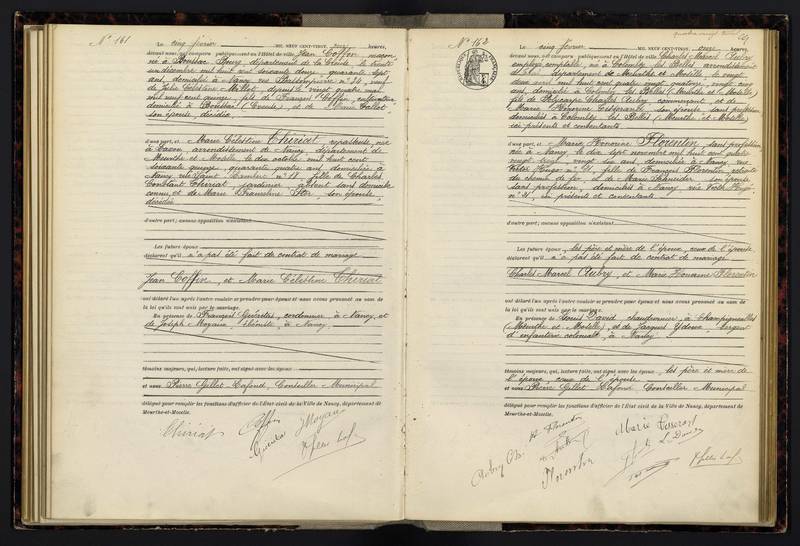 N° 161
Le cinq février MIL NEUF CENT-VINGT, onze heures,
devant nous, ont comparu publiquement en l'Hôtel de ville, Jean Coffin, maçon,
né à Boussac Bourg, département de la Creuse, le trente
un décembre mil huit cent soixante douze, quarante sept
ans, domicilié à Nancy, rue n° 34, veuf
de Julie Célestine Millot, depuis le vingt quatre mai
mil neuf cent quinze, fils de François Coffin, cultivateur,
domicilié à Boussac (Creuse), et de Marie
son épouse, décédée
d'une part, et Marie Célestine Thiriat, repasseuse, née
à arrondissement de Nancy, département de
Meurthe et Moselle, le dix octobre mil huit cent
soixante quinze, quarante quatre ans, domiciliée à
Nancy, rue n° 21, fille de Charles
Constant Thiriat, jardinier, absent sans domicile
connu, et de Marie Françoise son épouse,
décédée
d'autre part; aucune opposition n'existant
Les futurs époux
déclarent qu'il n'a pas été fait de contrat de mariage
Jean Coffin, et Marie Célestine Thiriat
ont déclaré l'un après l'autre vouloir se prendre pour époux et nous avons prononcé au nom de
la loi qu'ils sont unis par le mariage.
En présence de François cordonnier, à Nancy, et
de Joseph Moyaux, ébéniste, à Nancy,
témoins majeurs, qui, lecture faite, ont signé avec les époux
et nous Pierre Gillet-Lafond, Conseiller Municipal
délégué pour remplir les fonctions d'officier de l'État civil de la Ville de Nancy, département de
Meurthe-et-Moselle.
Thiriat Coffin
N° 162
Le cinq février MIL NEUF CENT-VINGT, onze heures,
devant nous, ont comparu publiquement en l'Hôtel de ville, Charles Marcel Aubry,
employé comptable, né à Colombey les Belles, arrondissement
de Toul, département de Meurthe et Moselle, le vingt
mil huit cent quatre vingt quatorze, vingt cinq
ans, domicilié à Colombey les Belles (Meurthe et Moselle)
fils de Polycarpe Charles Aubry, commerçant, et de
Marie Honorine son épouse, sans profession,
domiciliés à Colombey les Belles (Meurthe et Moselle)
ici présents et consentants
d'une part, et Marie Honorine Florentin, sans profession,
née à Nancy, le dix sept novembre mil huit cent quatre
vingt treize, vingt six ans, domiciliée à Nancy, rue
Victor Hugo n° 21, fille de François Florentin, retraité
du chemin de fer, et de Marie Schneider, son épouse,
sans profession, domiciliés à Nancy, rue Victor Hugo
n° 21, ici présents et consentants
d'autre part; aucune opposition n'existant
Les futurs époux, les père et mère de l'époux, ceux de l'épouse
déclarent qu'il n'a pas été fait de contrat de mariage
Charles Marcel Aubry, et Marie Honorine Florentin
ont déclaré l'un après l'autre vouloir se prendre pour époux et nous avons prononcé au nom de
la loi qu'ils sont unis par le mariage.
En présence de Louis David, chaudronnier, à Champigneulles
(Meurthe et Moselle), et de Jacques sergent
d'infanterie coloniale, à Nancy,
témoins majeurs, qui, lecture faite, ont signé avec les époux, les père et mère de
l'époux, ceux de l'épouse
et nous Pierre Gillet-Lafond, Conseiller Municipal
délégué pour remplir les fonctions d'officier de l'État civil de la Ville de Nancy, département de
Meurthe-et-Moselle.
Aubry Ch. Florentin